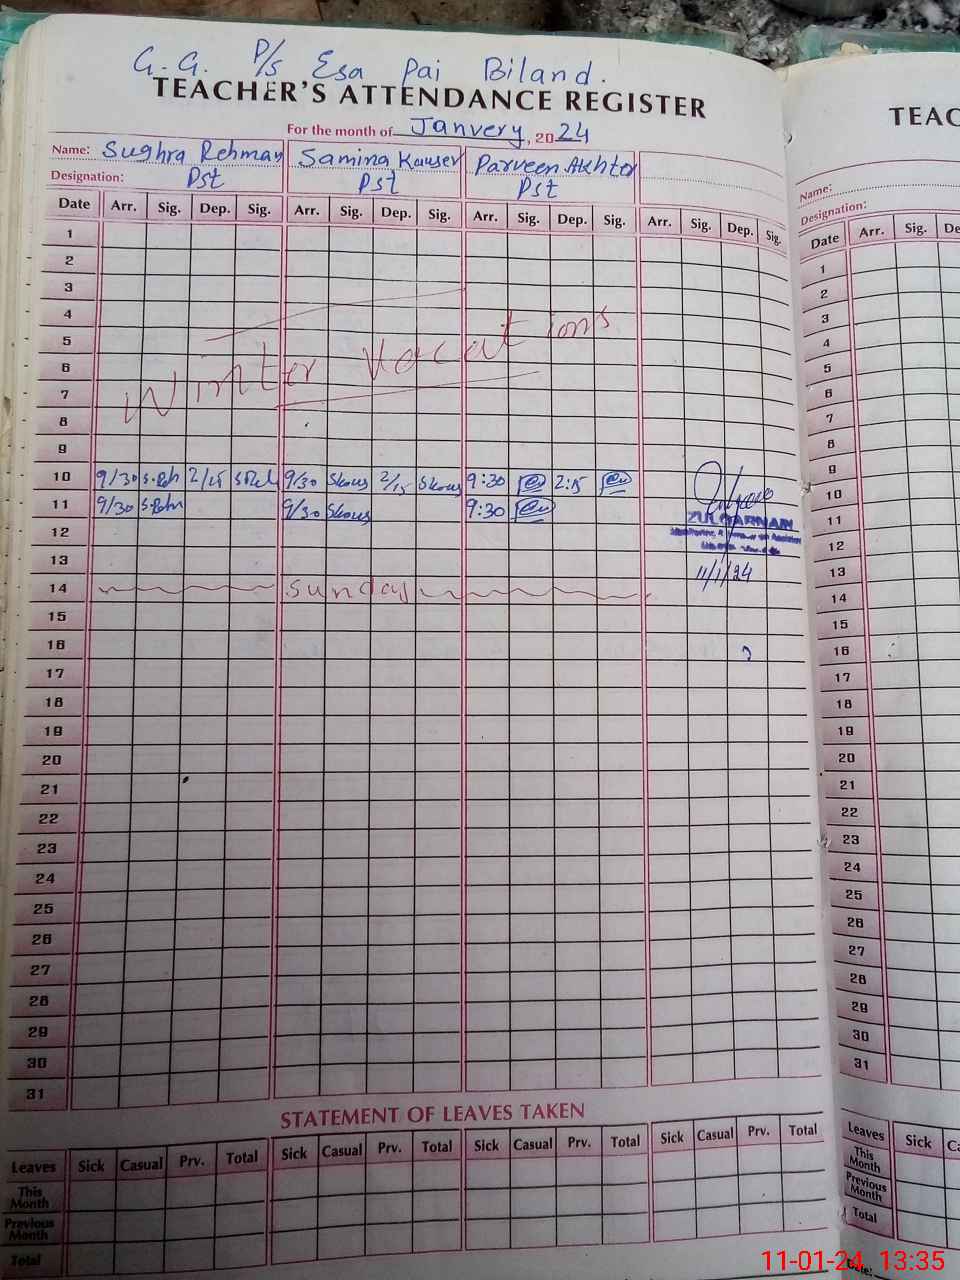 G.G. P/S Esa Pai Biland.
TEACHER'S ATTENDANCE REGISTER
For the month of Janvery, 2024
Name: Sughra Rehman Samina Kauser Parveen Akhter
Designation: Pst Pst Pst
Date Arr. Sig. Dep. Sig. Arr. Sig. Dep. Sig. Arr. Sig. Dep. Sig. Arr. Sig. Dep. Sig.
1
2
3
4
5
6
Winter Vacations
7
8
9
10 9/30 2/15 9/30 2/15 9:30 2:15
11 9/30 9/30 9:30
ZULQARNAIN
12
13
11/1/24
14 Sunday
15
16
17
18
19
20
21
22
23
24
25
26
27
28
29
30
31
STATEMENT OF LEAVES TAKEN
Leaves Sick Casual Prv. Total Sick Casual Prv. Total Sick Casual Prv. Total Sick Casual Prv. Total
This Month
Previous Month
Total
TEAC
Name:
Designation:
Date Arr. Sig. De
1
2
3
4
5
6
7
8
9
10
11
12
13
14
15
16
17
18
19
20
21
22
23
24
25
26
27
28
29
30
31
Leaves Sick Ca
This Month
Previous Month
Total
Date:
11-01-24 13:35